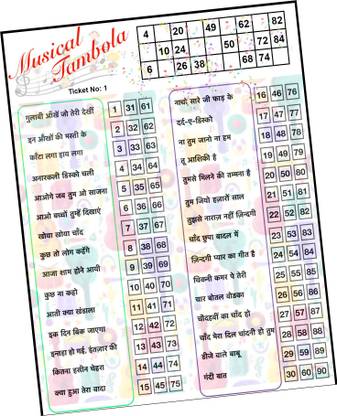 Musical
Tambola
4 20 49 62 82
10 24 50 72 84
6 26 38 68 74
Ticket No: 1
गुलाबी आँखें जो तेरी देखीं 1 31 61
इन आँखों की मस्ती के 2 32 62
काँटा लगा हाय लगा 3 33 63
अनारकली डिस्को चली 4 34 64
आओगे जब तुम ओ साजना 5 35 65
आओ बच्चों तुम्हें दिखाएं 6 36 66
खोया खोया चाँद 7 37 67
कुछ तो लोग कहेंगे 8 38 68
आजा शाम होने आयी 9 39 69
कुछ ना कहो 10 40 70
आती क्या खंडाला 11 41 71
इक दिन बिक जाएगा 12 42 72
इन्तहा हो गई, इंतज़ार की 13 43 73
कितना हसीन चेहरा 14 44 74
क्या हुआ तेरा वादा 15 45 75
नाचो सारे जी फाड़ के 16 46 76
दर्द-ए-डिस्को 17 47 77
ना तुम जानो ना हम 18 48 78
तू आशिकी है 19 49 79
तुमसे मिलने की तमन्ना है 20 50 80
तुम जियो हज़ारों साल 21 51 81
तुझसे नाराज़ नहीं ज़िन्दगी 22 52 82
चाँद छुपा बादल में 23 53 83
ज़िन्दगी प्यार का गीत है 24 54 84
चिकनी कमर पे तेरी 25 55 85
चार बोतल वोडका 26 56 86
चौदहवीं का चाँद हो 27 57 87
चाँद मेरा दिल चांदनी हो तुम 28 58 88
डीजे वाले बाबू 29 59 89
गंदी बात 30 60 90